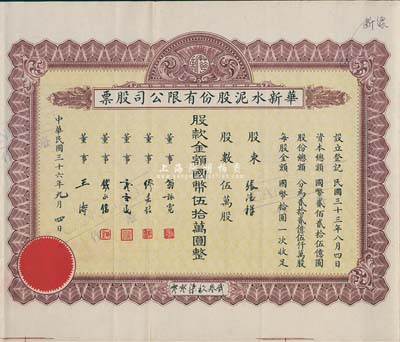 新添
華新水泥股份有限公司股票
設立登記 民國三十三年八月四日
資本總額 國幣貳佰貳拾伍億圓
股份總額 分為貳拾貳億伍仟萬股
每股金額 國幣拾圓一次收足
股東
股數 伍萬股
股款金額國幣伍拾萬圓整
董事 翁詠霓
董事
董事
董事
董事 王濤
中華民國三十六年九月四日